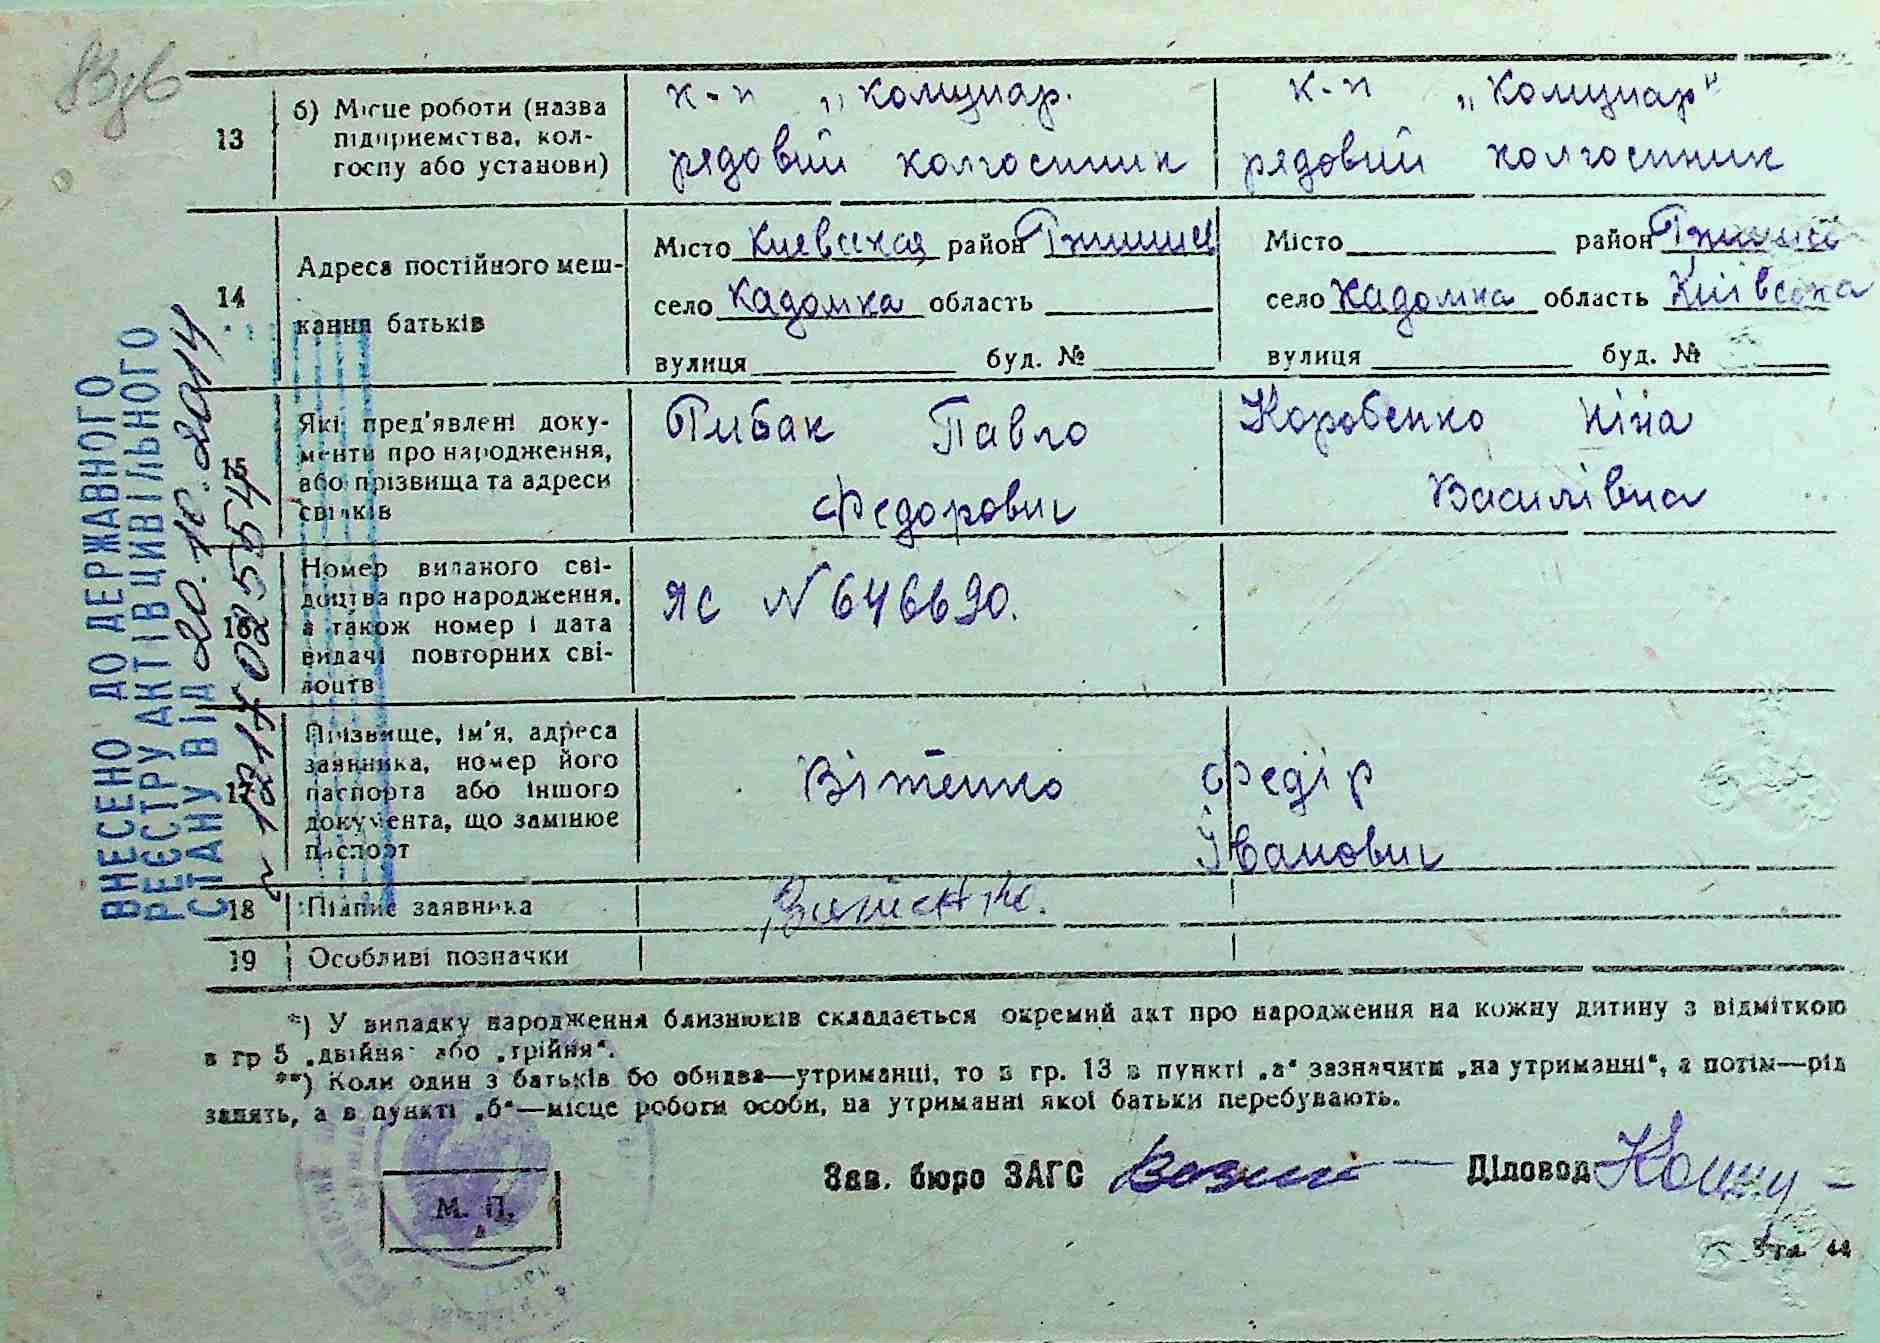 13
б) Місце роботи (назва
підприємства, кол-
госпу або установи)
к-п „Комунар.
рядовий колгоспник
к-п „Комунар"
рядовий колгоспник
14
Адреса постійного меш-
кання батьків
Місто Киевская район
село Кадомка область
вулиця буд. №
Місто район
село Кадомка область Київська
вулиця буд. №
15
Які пред'явлені доку-
менти про народження,
або прізвища та адреси
свідків
Рибак Павло
Федорович
Коробенко Ніна
Василівна
16
Номер виданого сві-
доцтва про народження,
а також номер і дата
видачі повторних сві-
доцтв
ЯС № 646690.
17
Прізвище, ім'я, адреса
заявника, номер його
паспорта або іншого
документа, що замінює
паспорт
Вітенко Федір
Іванович
18
Підпис заявника
19
Особливі позначки
ВНЕСЕНО ДО ДЕРЖАВНОГО
РЕЄСТРУ АКТІВ ЦИВІЛЬНОГО
СТАНУ ВІД 20.10.2014
*) У випадку народження близнюків складається окремий акт про народження на кожну дитину з відміткою
в гр 5 „двійня" або „трійня".
**) Коли один з батьків бо обидва—утриманці, то в гр. 13 в пункті „а" зазначити „на утриманні", а потім—рід
занять, а в пункті „б"—місце роботи особи, на утриманні якої батьки перебувають.
Зав. бюро ЗАГС Діловод
М. П.
44